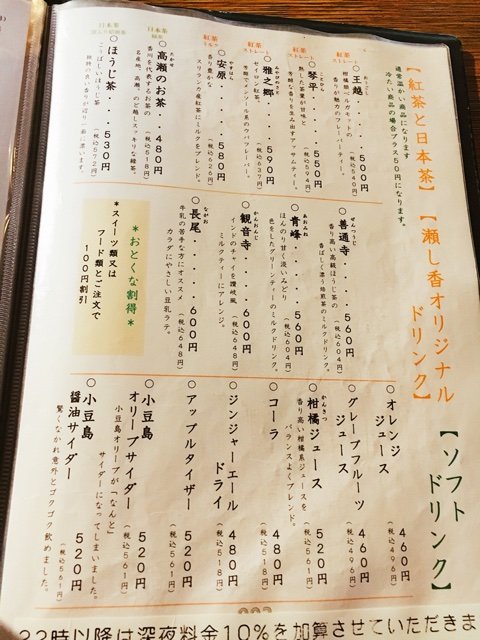 【紅茶と日本茶】
通常温かい商品になります
冷たい商品の場合プラス50円になります。
紅茶
ストレート
○王越・・・550円
（税込540円）
柑橘類ベルガモットの
香りが魅力のフレーバーティー。
紅茶
ストレート
○琴平・・・550円
（税込594円）
熟した茶葉が甘味と
芳醇な香りを生み出すアッサムティー。
紅茶
ストレート
○雅之郷・・・590円
（税込637円）
セイロン紅茶。
芳醇でメンソール系のウバフレーバー。
紅茶
ミルク
○安原・・・580円
（税込626円）
香り豊かな
スリランカ産紅茶にミルクをブレンド。
日本茶
緑茶
○高瀬のお茶・・480円
（税込518円）
香川を代表するお茶の
産地名、高瀬。のど越しスッキリな緑茶。
日本茶
○ほうじ茶・・・530円
（税込572円）
こうばしいほうじ茶。
独特の良い香りが辺り一面に漂います。
【瀬し香オリジナル
ドリンク】
○善通寺・・・560円
（税込604円）
香り高い高級ほうじ茶の
香ばしく漂う焙煎茶のミルクドリンク。
○青峰・・・560円
（税込604円）
ほんのり甘く淡いみどり
色をしたグリーンティーのミルクドリンク。
○観音寺・・・600円
（税込648円）
インドのチャイを讃岐風
ミルクティーにアレンジ。
○長尾・・・600円
（税込648円）
牛乳の苦手な方にオススメ
カラダにやさしい豆乳ラテ。
＊おとくな割得＊
＊スイーツ類又は
フード類とご注文で
100円割引
【ソフト
ドリンク】
○オレンジ
ジュース
460円
（税込496円）
○グレープフルーツ
ジュース
460円
（税込496円）
○柑橘ジュース
520円
（税込561円）
香り高い柑橘系ジュースを
バランスよくブレンド。
○コーラ
480円
（税込518円）
○ジンジャーエール
ドライ
480円
（税込518円）
○アップルタイザー
520円
（税込561円）
○小豆島
オリーブサイダー
520円
（税込561円）
小豆島オリーブが「なんと」
サイダーになってしまいました。
○小豆島
醤油サイダー
520円
（税込561円）
驚くなかれ意外とゴクゴク飲めました。
22時以降は深夜料金10％を加算させていただきま